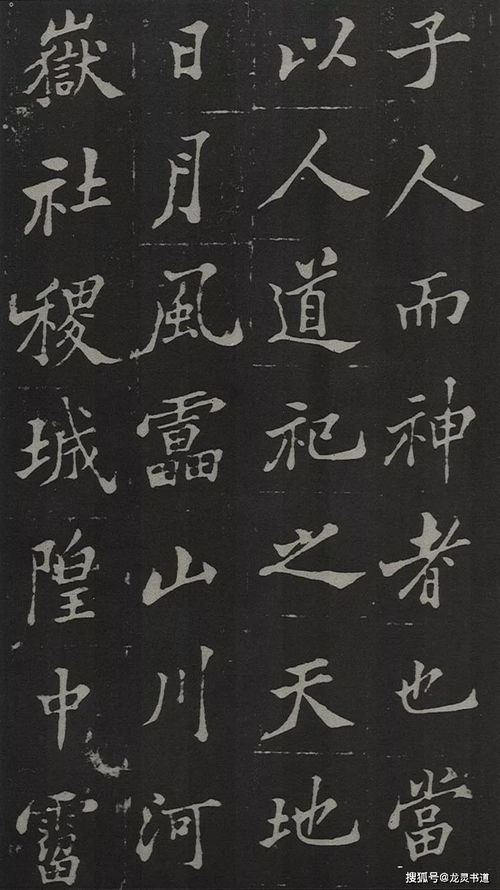 子人而神者也當
以人道祀之天地
日月風靁山川河
嶽社稷城隍中霤
搜狐号@龙灵书道